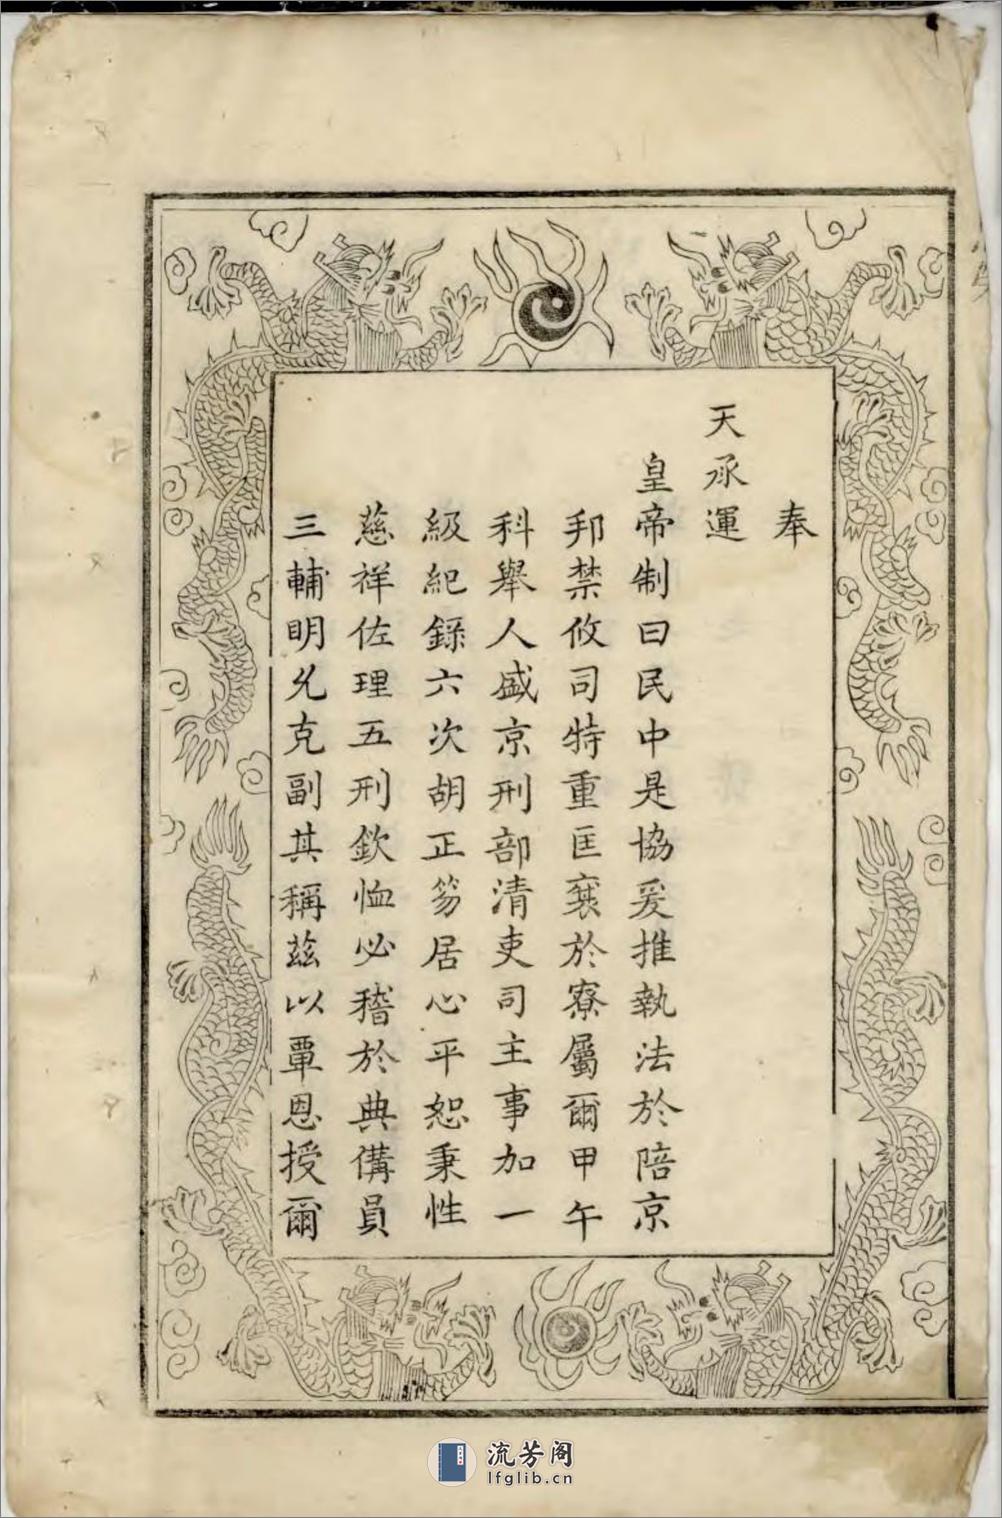 奉
天承運
皇帝制曰民中是協爰推執法於陪京
邦禁攸司特重匡襄於寮屬爾甲午
科舉人盛京刑部清吏司主事加一
級紀錄六次胡正笏居心平恕秉性
慈祥佐理五刑欽恤必稽於典備員
三輔明允克副其稱茲以覃恩授爾
流芳阁
lfglib.cn